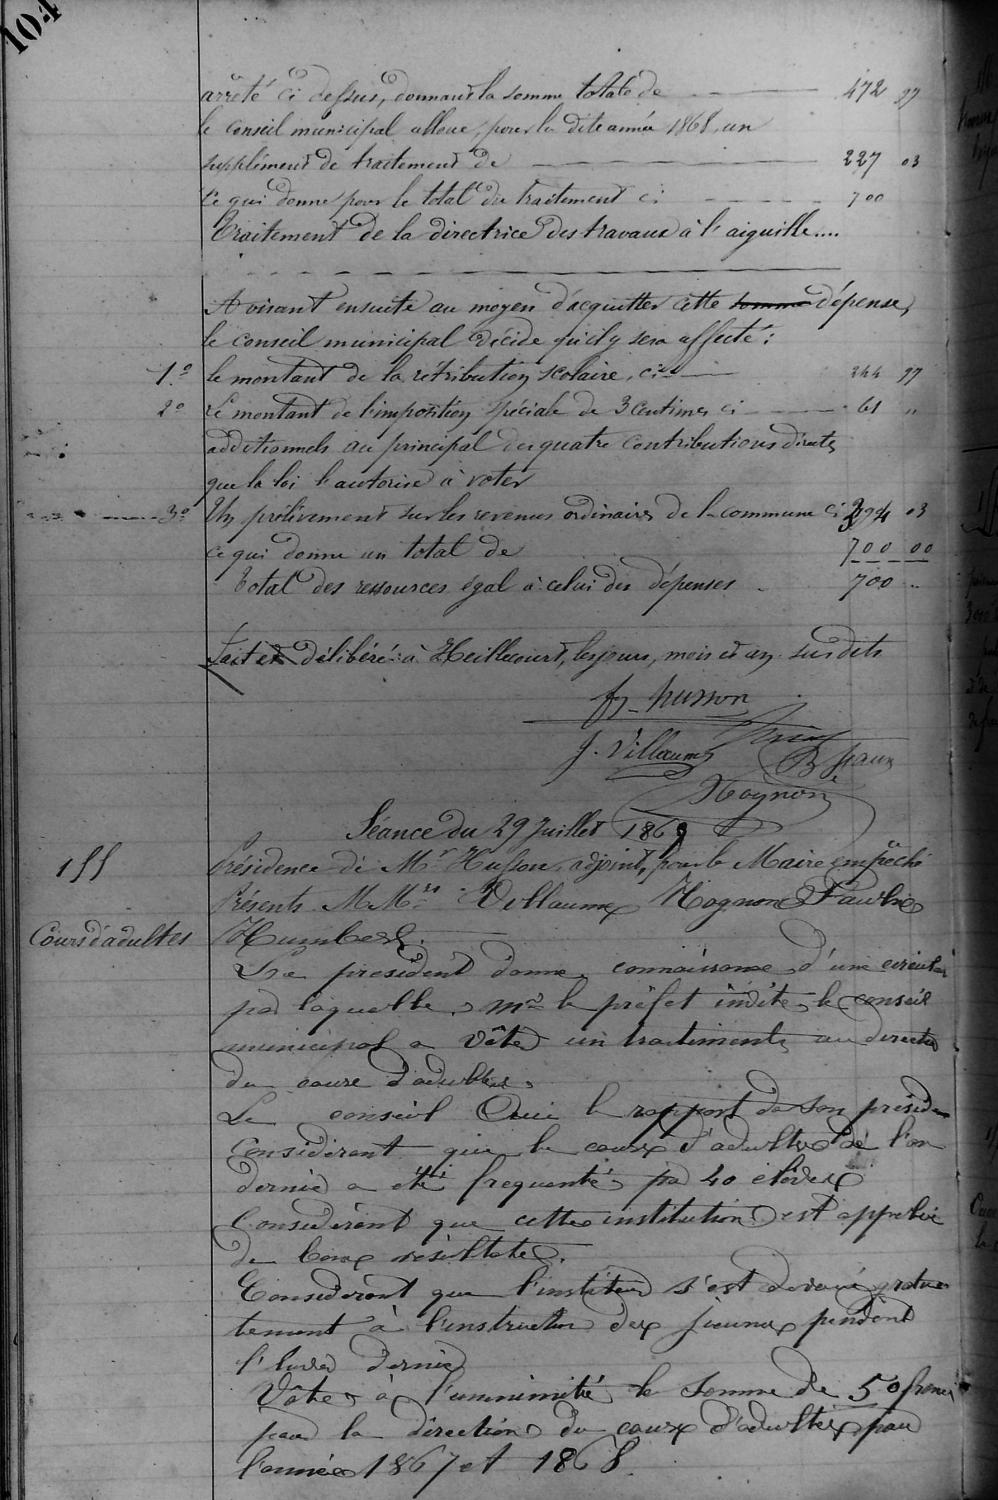 104
arrêté ci dessus, donnant la somme totale de 472 97
le conseil municipal alloue, pour la dite année 1868, un
supplément de traitement de 227 03
ce qui donne pour le total du traitement ci 700
Traitement de la directrice des travaux à l'aiguille....
Avisant ensuite au moyen d'acquitter cette somme dépense,
le conseil municipal décide qu'il y sera affecté :
1.º le montant de la rétribution scolaire, ci 97
2º Le montant de l'imposition spéciale de 3 Centimes ci 61 "
additionnels au principal des quatre contributions directes
que la loi l'autorise à voter
3º Un prélèvement sur les revenus ordinaires de la commune ci 394 03
ce qui donne un total de 700 00
Total des ressources égal à celui des dépenses 700 "
Fait et délibéré à Heillecourt, les jours, mois et an susdits
husson
J. Villaume
Hognon
Séance du 29 Juillet 1868
155 Présidence de Mr Husson, adjoint, pour le Maire empêché
Présents M.Mrs Villaume Hognon
Cours d'adultes Humbert.
Le president donne connaissance d'une circulai
par laquelle mr le préfet invite le conseil
municipal a vôter un traitements au directeu
du cours d'adultes.
Le conseil Ouie le rapport de son préside
Considerant que le cours d'adultes de l'an
dernie a été frequenté par 40 elèves
Considerant que cette institution est
de bons résultates.
Considerant que l'institeur s'est devoué gratui
tement à l'instruction des jeunes pendent
l'hiver dernie
Vôte à l'unnimité la somme de 50 francs
pour la direction du cours d'adultes pour
l'année 1867 et 1868.